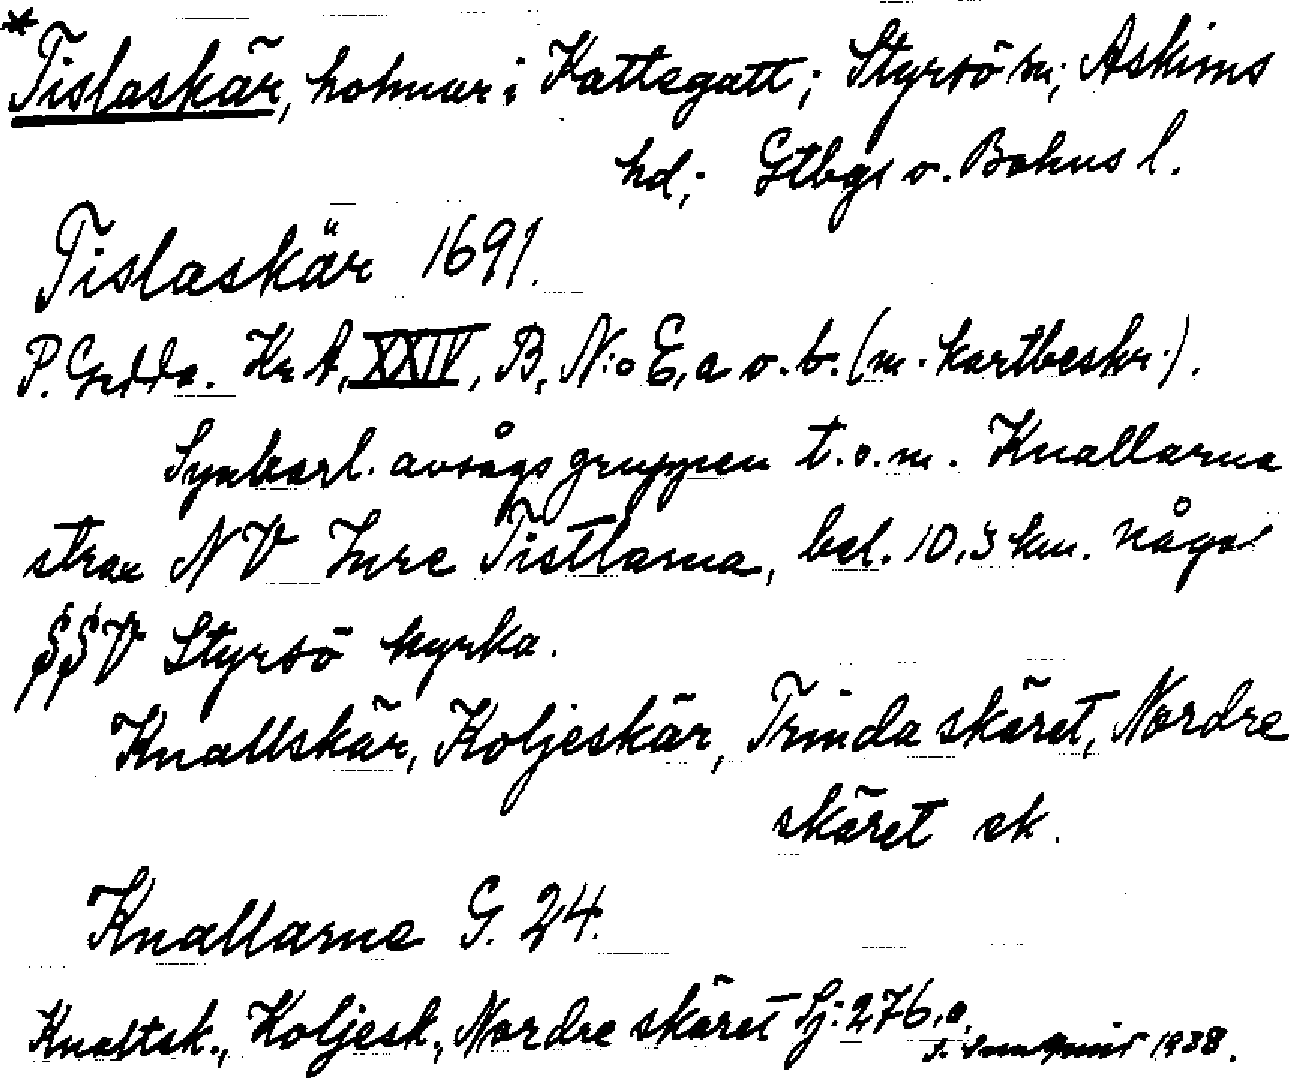 *Tislaskär, holmar i Kattegatt; Styrsö sn; Askims
hd; Gtbgs o. Bohus l.
Tislaskär 1691.
P. Gedda. Kr A, XXIV, B, N:o E, a o. b. (m. kartbeskr.).
Synbarl. avsågs gruppen t.o.m. Knallarna
strax NV Inre Tistlarna, bel. 10,3 km. något
SSV Styrsö kyrka.
Knallskär, Koljeskär, Trinda skäret, Nordre
skäret ek.
Knallarne G. 24.
Knaltsk., Koljesk., Nordre skäret Sj: 276.a.
1938.